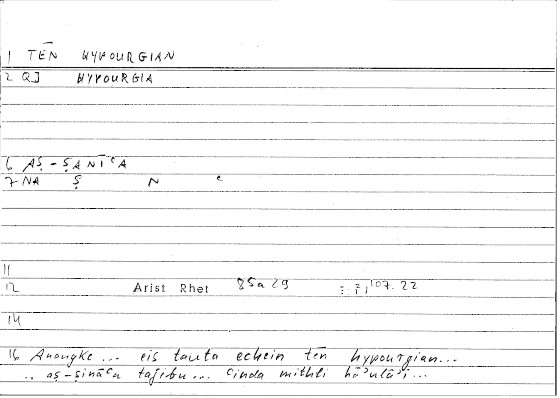 1 TĒN HYPOURGIAN
2 QJ HYPOURGIA
6 AṢ-ṢANĪʿA
7 NA Ṣ N ʿ
11
12 Arist Rhet 85a29 107.22
14
16 Anangke... eis tauta echein tēn hypourgian...
.. aṣ-ṣināʿa tajibu... ʿinda mithli hāʾulāʾi...